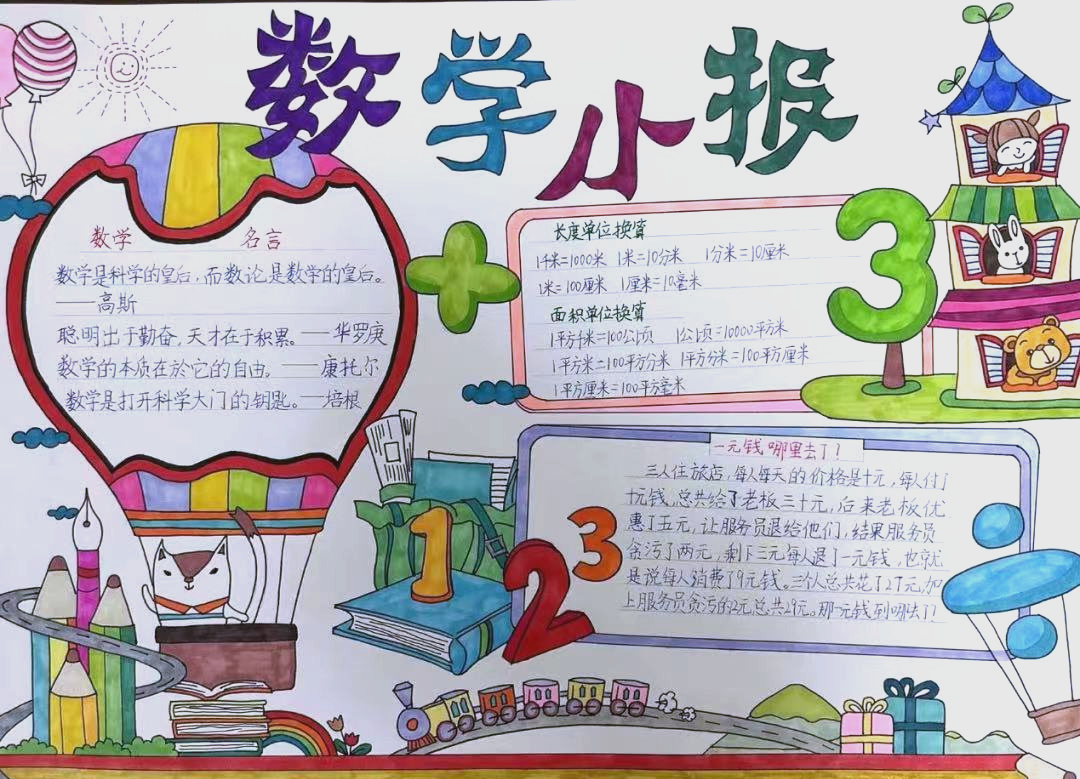 数学小报
数学 名言
数学是科学的皇后，而数论是数学的皇后。
——高斯
聪明出于勤奋，天才在于积累。——华罗庚
数学的本质在於它的自由。——康托尔
数学是打开科学大门的钥匙。——培根
长度单位换算
1千米=1000米 1米=10分米 1分米=10厘米
1米=100厘米 1厘米=10毫米
面积单位换算
1平方千米=100公顷 1公顷=10000平方米
1平方米=100平方分米 1平方分米=100平方厘米
1平方厘米=100平方毫米
一元钱哪里去了？
三人住旅店，每人每天的价格是十元，每人付了
十元钱，总共给了老板三十元，后来老板优
惠了五元，让服务员退给他们，结果服务员
贪污了两元，剩下三元每人退了一元钱，也就
是说每人消费了9元钱。三个人总共花了27元，加
上服务员贪污的2元总共29元。那一元钱到哪去了？
+
3
1
2
3